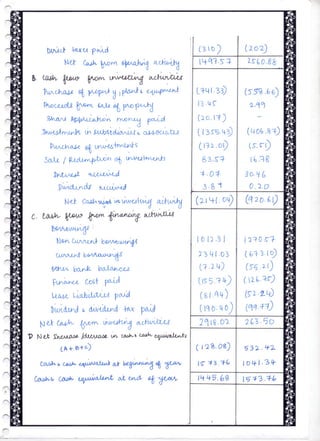 Direct taxes paid (310) (202)
Net Cash from operating activity 1497.57 1560.88
B Cash flow from investing activities
Purchase of property, plant & equipment (741.33) (559.66)
Proceeds from sale of property 13.45 2.49
Share Application money paid (20.17) -
Investments in subsidiaries & associates (1355.43)
Purchase of investments (172.01) (5.51)
Sale / Redemption of investments 83.57 16.78
Interest received 7.07 30.46
Dividends received 3.81 0.20
Net Cash used in investing activity (2141.04) (920.61)
C. Cash flow from financing activities
Borrowings
Non Current borrowings 1012.31 1270.57
Current borrowings 2341.03 (673.10)
Other bank balances (7.24) (59.21)
Finance Cost paid (155.74) (126.75)
Lease Liabilities paid (81.94) (52.24)
Dividend & dividend tax paid (190.40) (99.77)
Net Cash from investing activities 2918.02 263.50
D Net Increase / decrease in cash & cash equivalents
(A+B+C) (128.08) 532.42
Cash & cash equivalent at beginning of year 1573.76 1041.34
Cash & Cash equivalent at end of year 1445.68 1573.76